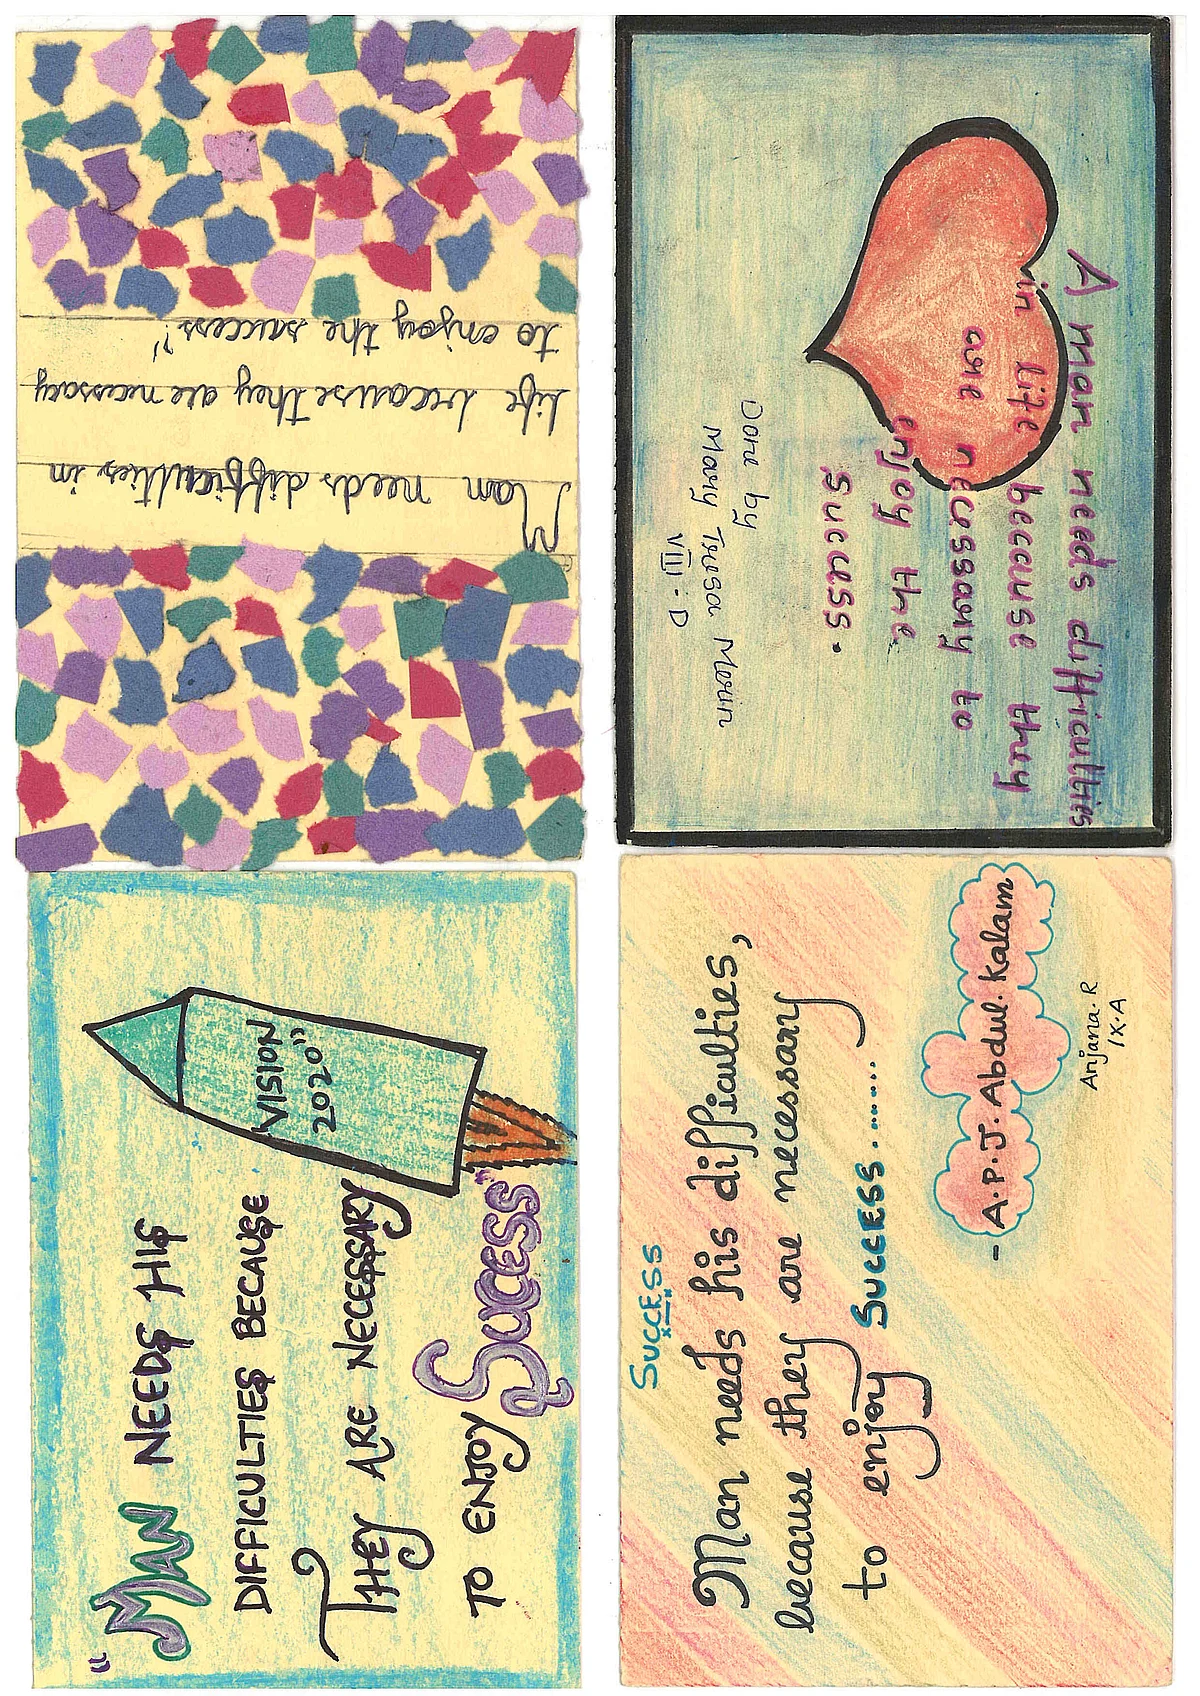 Man needs difficulties in
life because they are necessary
to enjoy the success"
A man needs difficulties
in life because they
are necessary to
enjoy the
success.
Done by
Mary Tresa Merin
VIII - D
"MAN NEEDS HIS
DIFFICULTIES BECAUSE
THEY ARE NECESSARY
TO ENJOY SUCCESS"
VISION
2020"
SUCCESS
Man needs his difficulties,
because they are necessary
to enjoy SUCCESS.......
- A.P.J. Abdul. Kalam
Anjana. R
IX. A